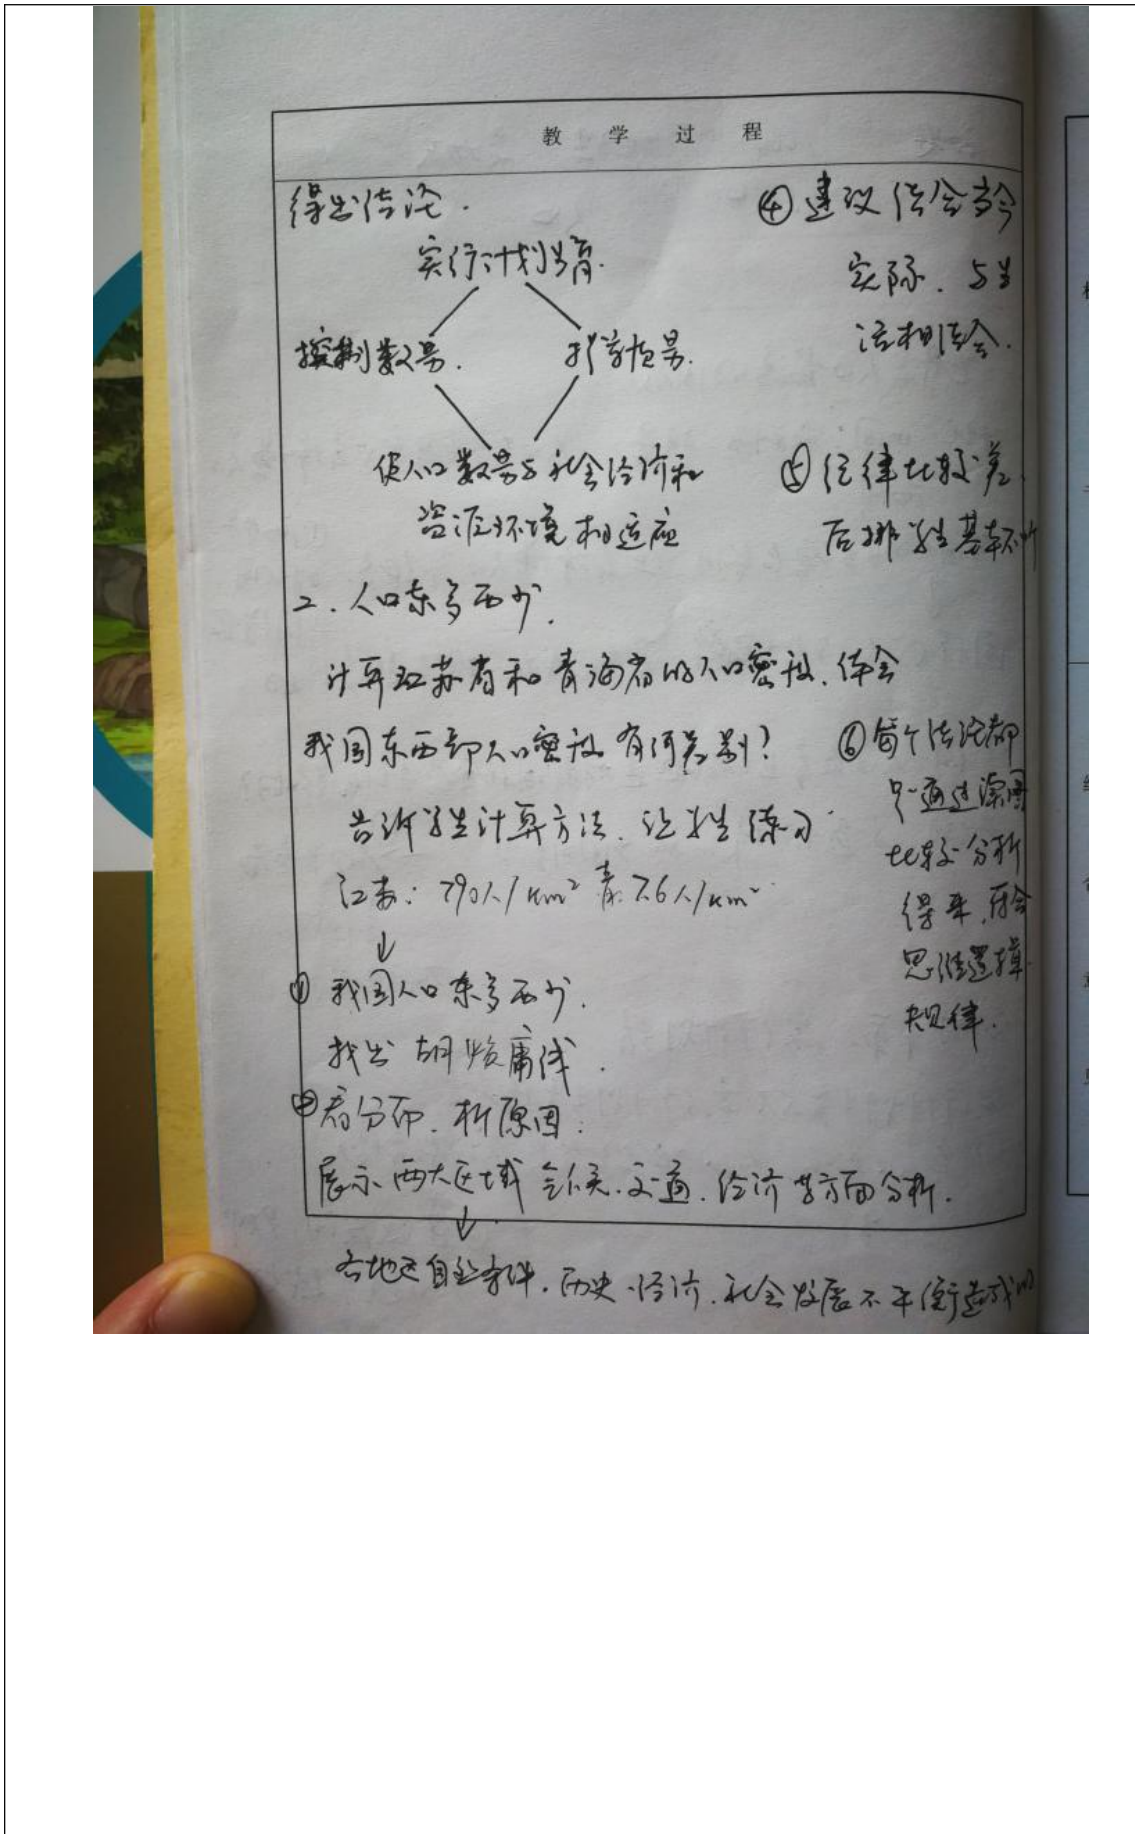 教学过程
得出结论.
实行计划生育.
控制数量.
提高质量.
使人口数量与社会经济和
资源环境相适应
二.人口东多西少.
计算江苏省和青海省的人口密度、体会
我国东西部人口密度有何差别?
告诉学生计算方法、让学生练习
江苏: 790人/km² 青: 7.6人/km²
↓
① 我国人口东多西少.
找出胡焕庸线.
② 看分布、析原因.
展示两大区域气候、交通、经济等方面分析.
↓
各地区自然条件、历史、经济、社会发展不平衡造成的
④ 建议结合当今
实际、与生
活相结合.
⑤ 纪律比较差、
后排学生基本不听
⑥ 每个结论都
通过读图
比较分析
得来,
思维
规律.